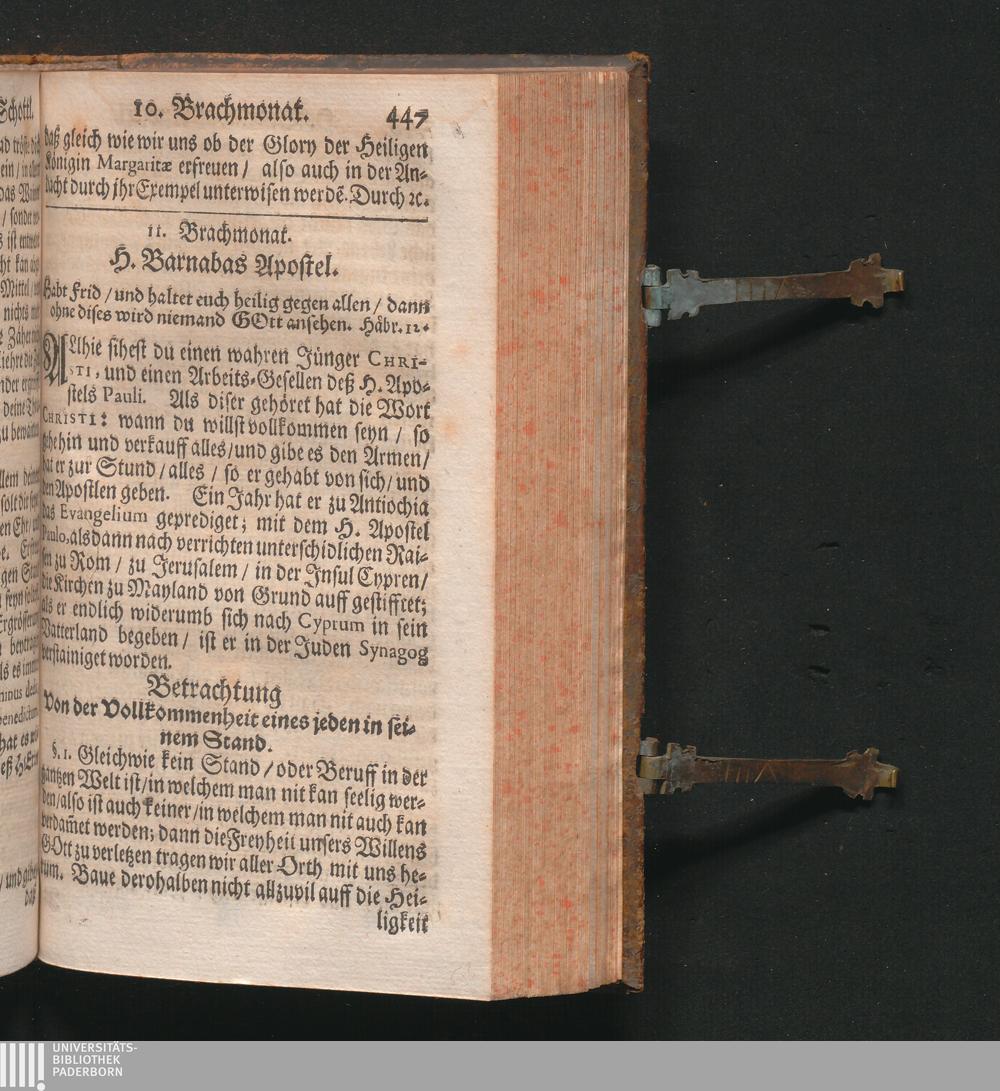 10. Brachmonat. 447
daß gleich wie wir uns ob der Glory der Heiligen
Königin Margaritæ erfreuen / also auch in der An-
dacht durch jhr Exempel unterwisen werdẽ. Durch ꝛc.
11. Brachmonat.
H. Barnabas Apostel.
Habt Frid / und haltet euch heilig gegen allen / dann
ohne dises wird niemand GOtt ansehen. Häbr. 12.
ALlhie sihest du einen wahren Jünger CHRI-
STI, und einen Arbeits-Gesellen deß H. Apo-
stels Pauli. Als diser gehöret hat die Wort
CHRISTI: wann du willst vollkommen seyn / so
gehe hin und verkauff alles / und gibe es den Armen /
hat er zur Stund / alles / so er gehabt von sich / und
den Apostlen geben. Ein Jahr hat er zu Antiochia
das Evangelium geprediget; mit dem H. Apostel
Paulo, alsdann nach verrichten unterschidlichen Rai-
sen zu Rom / zu Jerusalem / in der Insul Cypren /
die Kirchen zu Mayland von Grund auff gestifftet;
als er endlich widerumb sich nach Cyprum in sein
Vatterland begeben / ist er in der Juden Synagog
verstainiget worden.
Betrachtung
Von der Vollkommenheit eines jeden in sei-
nem Stand.
§. 1. Gleichwie kein Stand / oder Beruff in der
gantzen Welt ist / in welchem man nit kan seelig wer-
den / also ist auch keiner / in welchem man nit auch kan
verdam̃et werden; dann die Freyheit unsers Willens
GOtt zu verletzen tragen wir aller Orth mit uns he-
rum. Baue derohalben nicht allzuvil auff die Hei-
ligkeit
UNIVERSITÄTS-
BIBLIOTHEK
PADERBORN